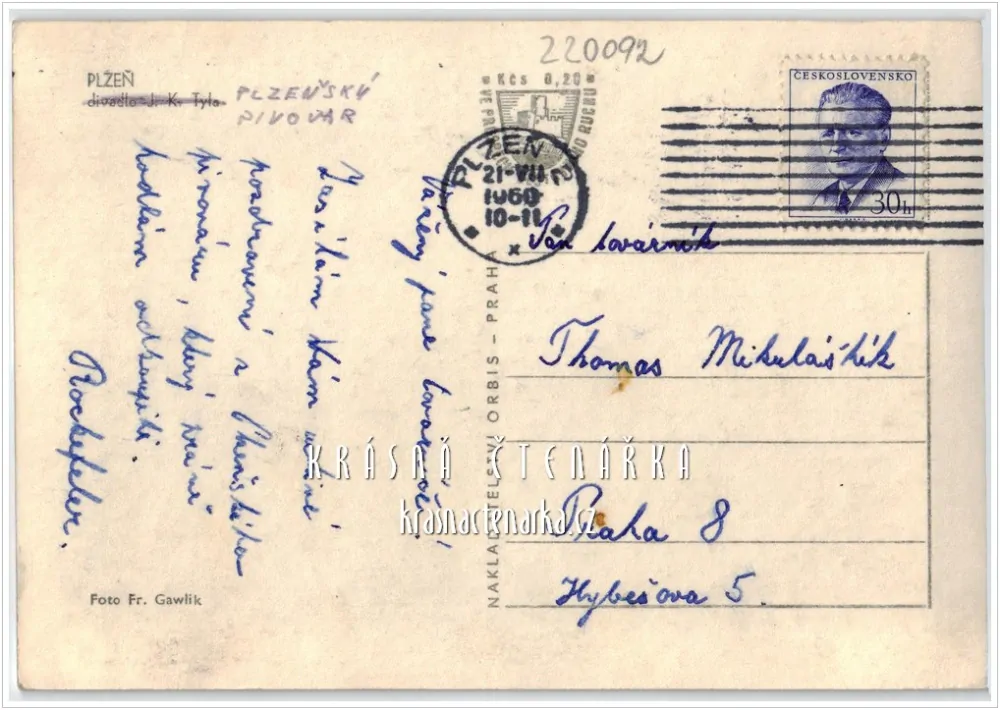 220092
PLZEŇ
divadlo J. K. Tyla
PLZEŇSKÝ
PIVOVAR
Kčs 0,20
PLZEŇ 2
21-VII
1960
10-11
x
ČESKOSLOVENSKO
30h
Vážený pane továrníče!
Zasílám Vám uctivé
pozdravení z Plzeňského
pivovaru, který právě
hodlám odkoupiti.
Rockefeler.
Pan továrník
Thomas Mikuláštík
Praha 8
Hybešova 5.
NAKLADATELSTVÍ ORBIS – PRAHA
Foto Fr. Gawlik
KRÁSNÁ ČTENÁŘKA
krasnactenarka.cz